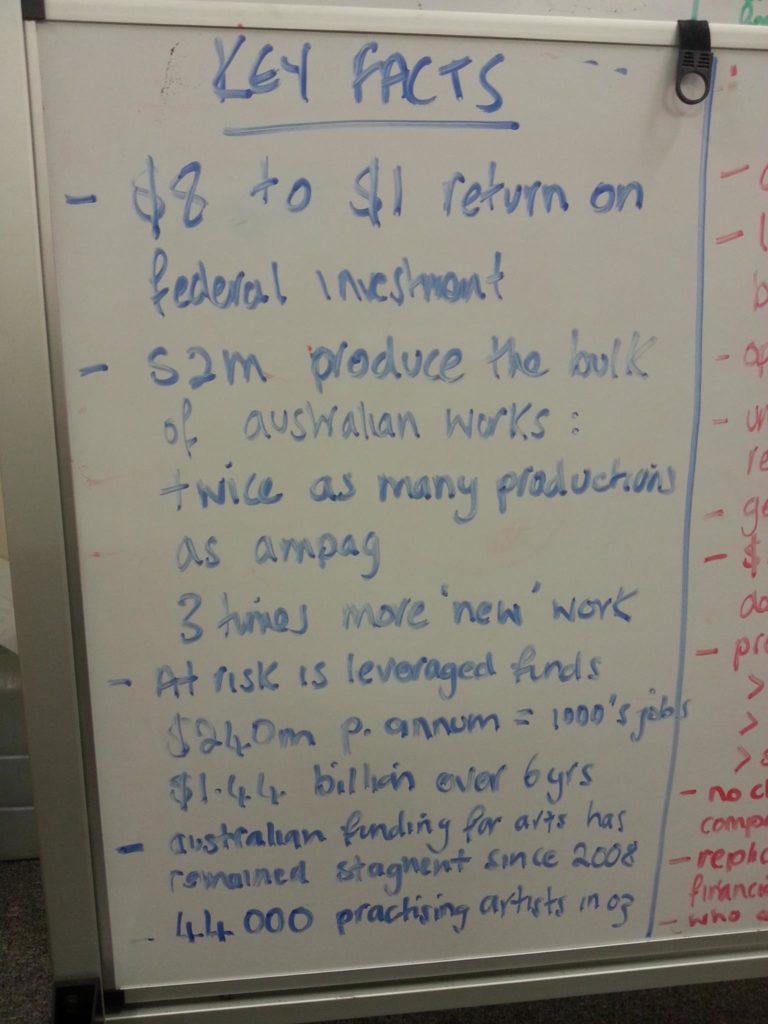 KEY FACTS
- $8 to $1 return on
federal investment
- S2M produce the bulk
of australian works :
twice as many productions
as ampag
3 times more 'new' work
- At risk is leveraged funds
$240m p. annum = 1000's jobs
$1.44 billion over 6yrs
- australian funding for arts has
remained stagnent since 2008
- 44 000 practising artists in oz
- no
-
- who